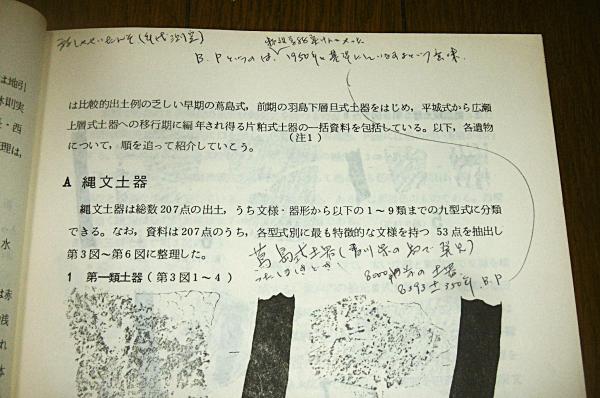 B.Pというのは、
1950年を基準にしているという意味
は比較的出土例の乏しい早期の蔦島式，前期の羽島下層旦式土器をはじめ，平城式から広瀬
上層式土器への移行期に編年され得る片粕式土器の一括資料を包括している。以下，各遺物
(注1)
について，順を追って紹介していこう。
A 縄文土器
縄文土器は総数207点の出土，うち文様・器形から以下の1～9類までの九型式に分類
できる。なお，資料は207点のうち，各型式別に最も特徴的な文様を持つ 53点を抽出し
第3図～第6図に整理した。
蔦島式土器(香川県の島で発見)
つたじましきどき
8000年前の土器
8393±350年 B.P
1 第一類土器（第3図1～4）
は地引
休則実
・西
理は，
水
は赤
浅
れ
体